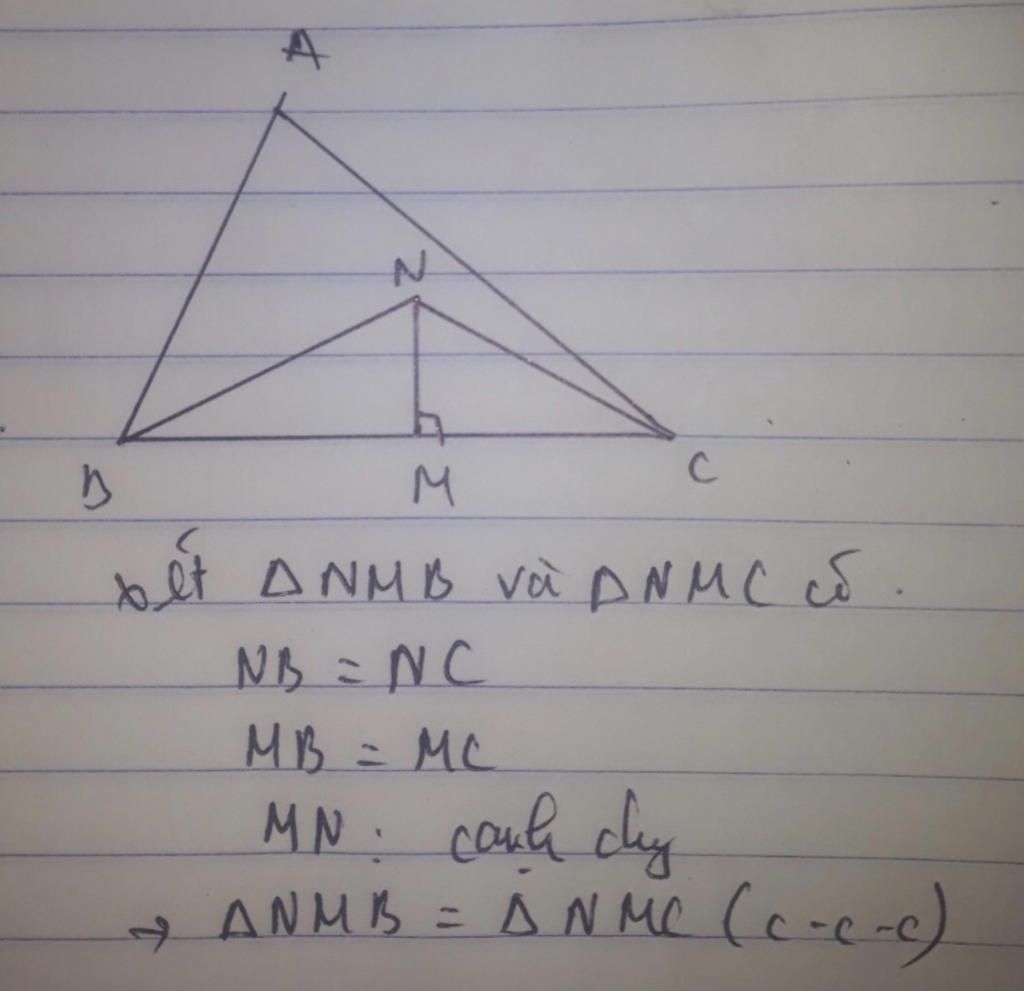 A
N
B M C
Xét ΔNMB và ΔNMC có.
NB = NC
MB = MC
MN : cạnh chg
→ ΔNMB = ΔNMC (c-c-c)